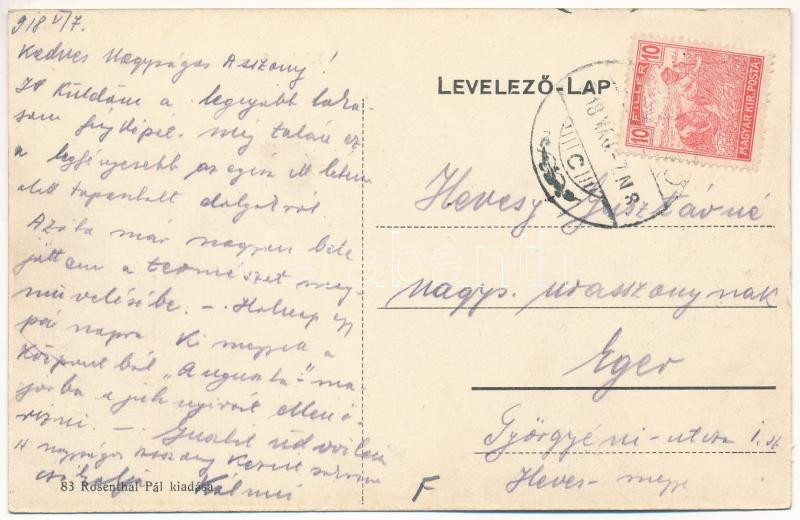 918 V/7.
Kedves Nagyságos Asszony!
Itt küldöm a legujabb laká-
som fényképét. még talán ez
a legfényesebb az egész itt létem
alatt tapasztalt dolgokról.
Azóta már nagyon bele
jöttem a természet meg-
művelésébe. — Holnap egy
pár napra ki megyek a
központból „Augusta"-ma-
jorba a juh nyirást ellenő-
rizni. — Gusztit üdvözlöm
A nagyságos asszony kezeit
csókolja Kálmán
83 Rosenthal Pál kiadása
LEVELEZŐ-LAP
10 FILLÉR 10
MAGYAR KIR. POSTA
Hevesy Gusztávné
nagys. urasszonynak
Eger
Györgyéni-utcza 1. sz
Heves-megye
F
darabanth